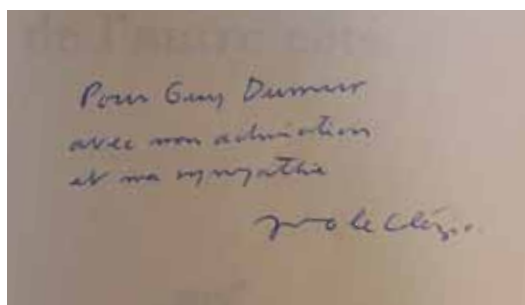 de l'autre côté
Pour Guy Dumur
avec mon admiration
et ma sympathie
JMG Le Clézio.